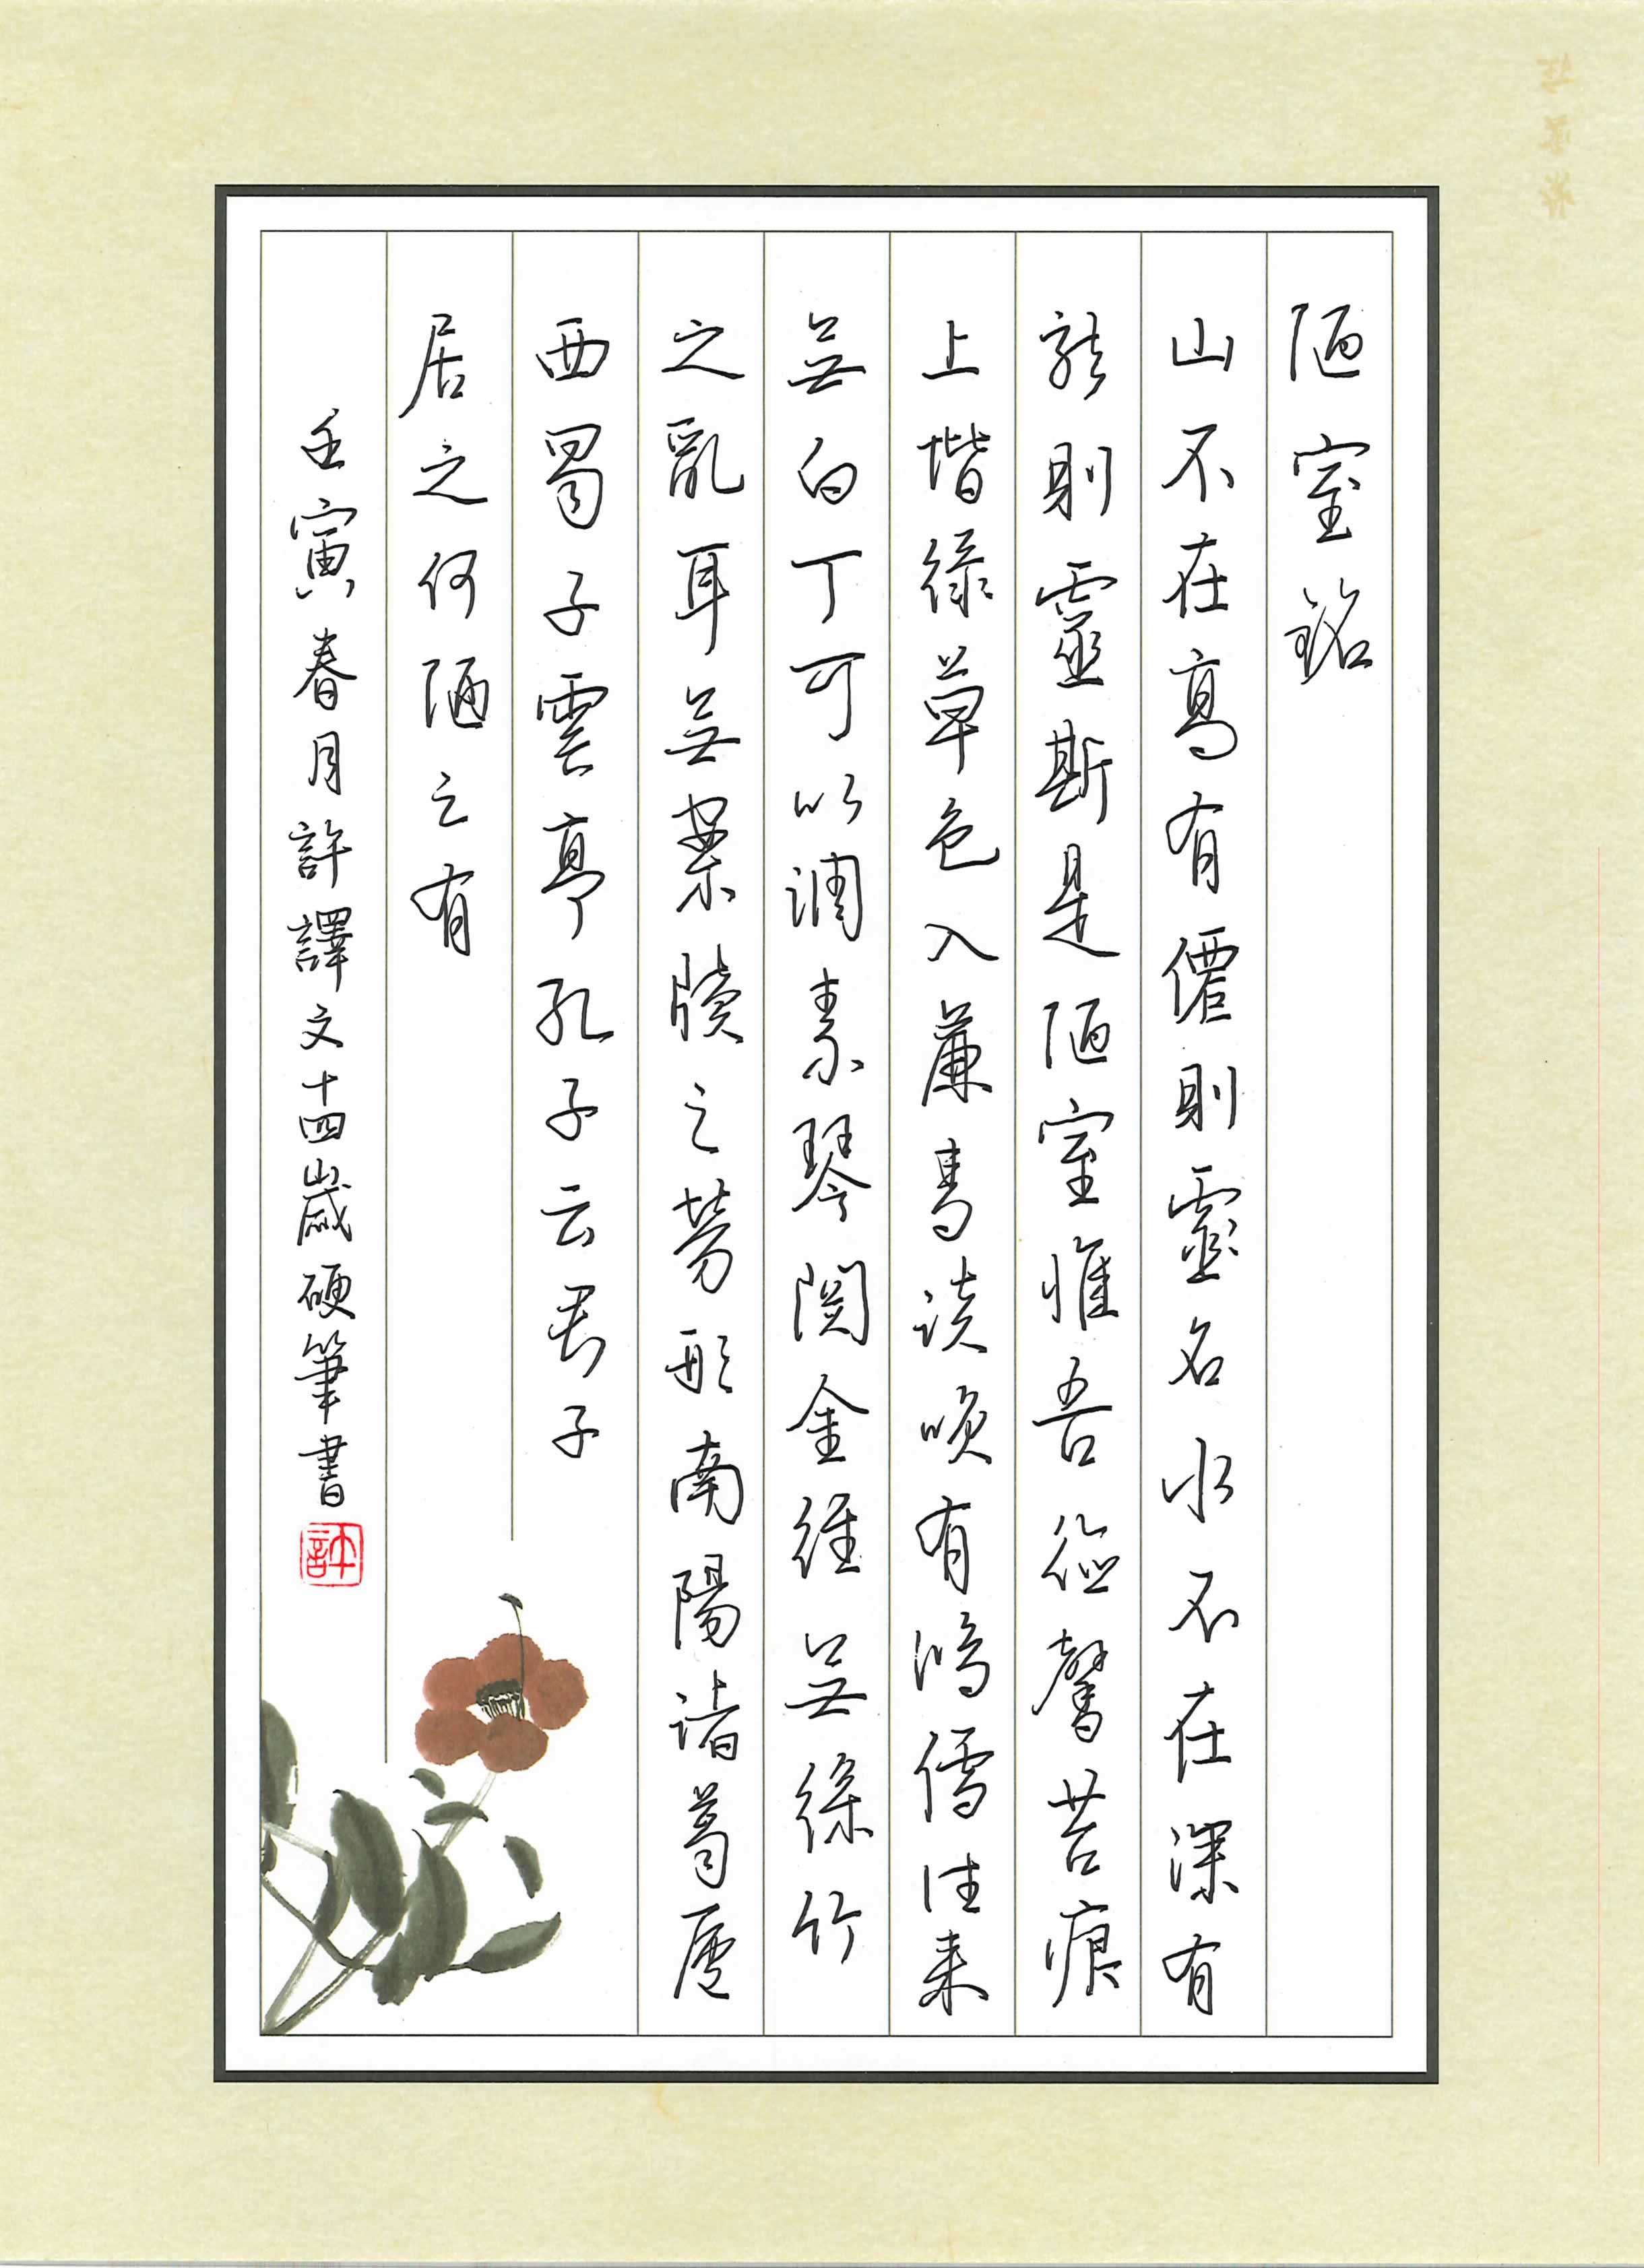 陋室銘
山不在高有僊則靈名水不在深有
龍則靈斯是陋室惟吾德馨苔痕
上堦綠草色入簾青談咲有鴻儒往来
無白丁可以調素琴閱金經無絲竹
之亂耳無案牘之勞形南陽諸葛廬
西蜀子雲亭孔子云君子
居之何陋之有
壬寅春月許譯文十四歲硬筆書
許